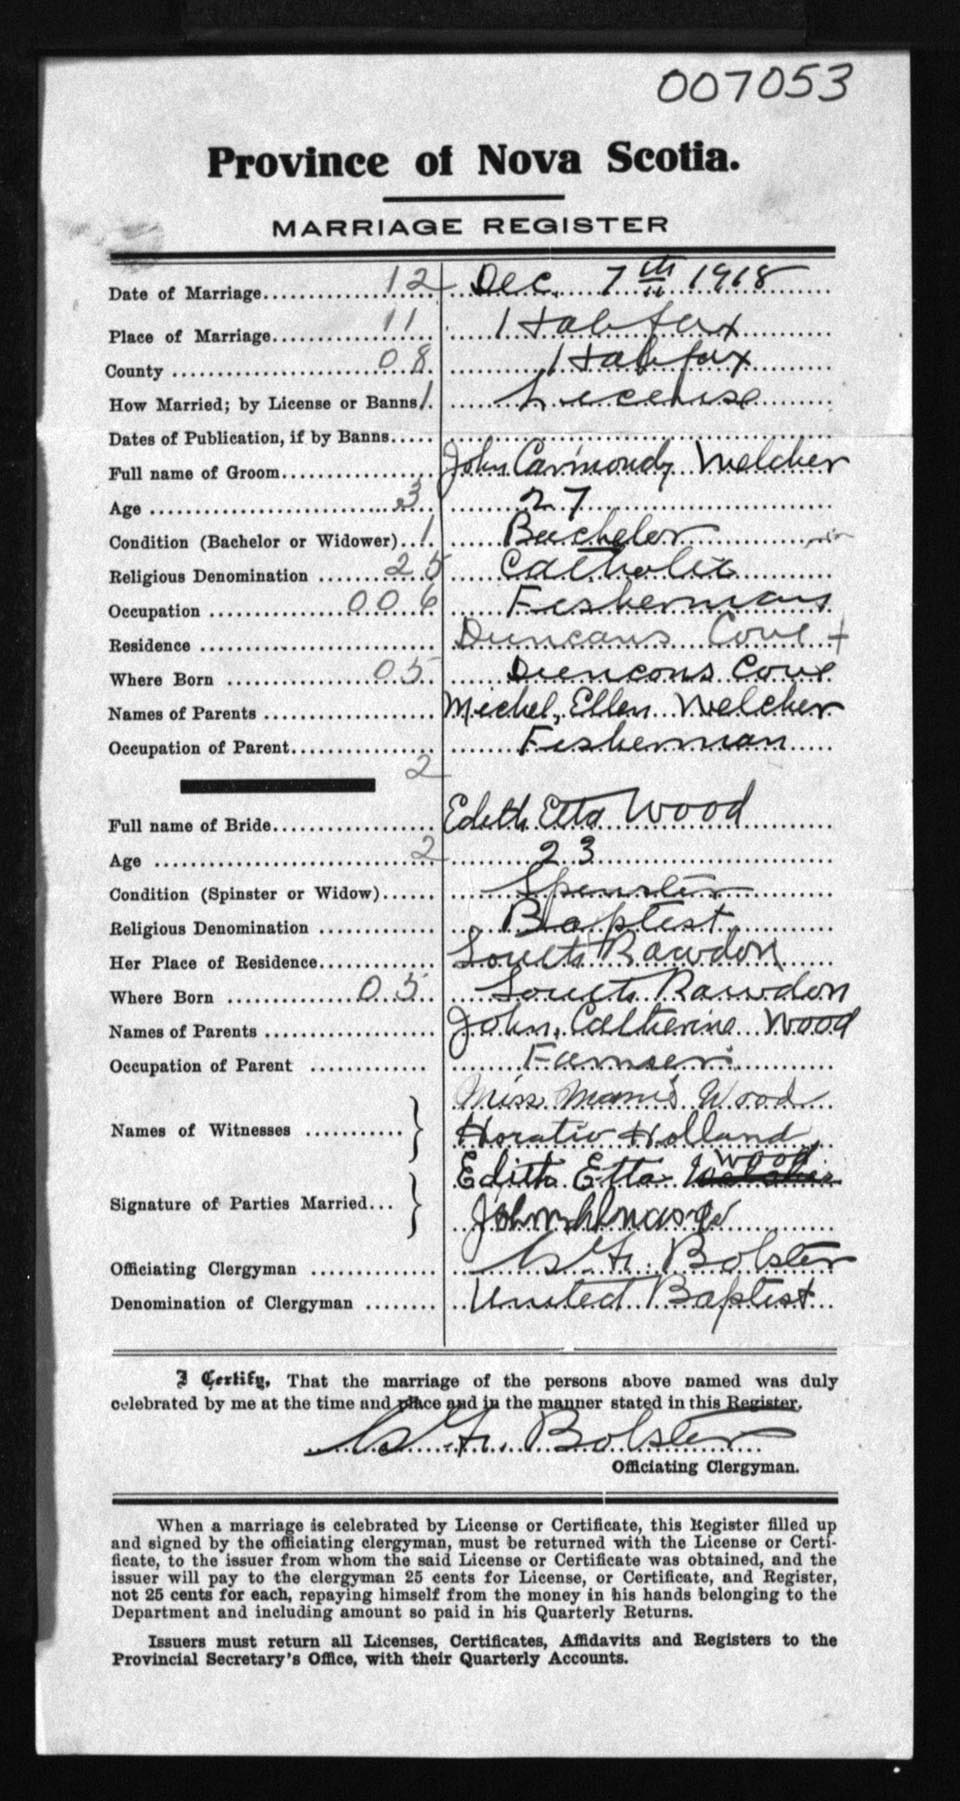 007053
Province of Nova Scotia.
MARRIAGE REGISTER
Date of Marriage 12 Dec. 7th 1918
Place of Marriage 11 Halifax
County 08 Halifax
How Married; by License or Banns 1 License
Dates of Publication, if by Banns
Full name of Groom John Carmondy Welcher
Age 3 27
Condition (Bachelor or Widower) 1 Bachelor
Religious Denomination 25 Catholic
Occupation 006 Fisherman
Residence Duncans Cove +
Where Born 05 Duncons Cove
Names of Parents Michel, Ellen Welcher
Occupation of Parent Fisherman
2
Full name of Bride Edith Etta Wood
Age 2 23
Condition (Spinster or Widow) Spinster
Religious Denomination Baptist
Her Place of Residence South Rawdon
Where Born 05 South Rawdon
Names of Parents John, Catherine Wood
Occupation of Parent Farmer
Miss Mamie Wood
Names of Witnesses } Horatio Holland
Edith Etta Wood
Signature of Parties Married } John
Officiating Clergyman Bolster
Denomination of Clergyman United Baptist
I Certify, That the marriage of the persons above named was duly
celebrated by me at the time and place and in the manner stated in this Register.
Bolster
Officiating Clergyman.
When a marriage is celebrated by License or Certificate, this Register filled up
and signed by the officiating clergyman, must be returned with the License or Certi-
ficate, to the issuer from whom the said License or Certificate was obtained, and the
issuer will pay to the clergyman 25 cents for License, or Certificate, and Register,
not 25 cents for each, repaying himself from the money in his hands belonging to the
Department and including amount so paid in his Quarterly Returns.
Issuers must return all Licenses, Certificates, Affidavits and Registers to the
Provincial Secretary's Office, with their Quarterly Accounts.